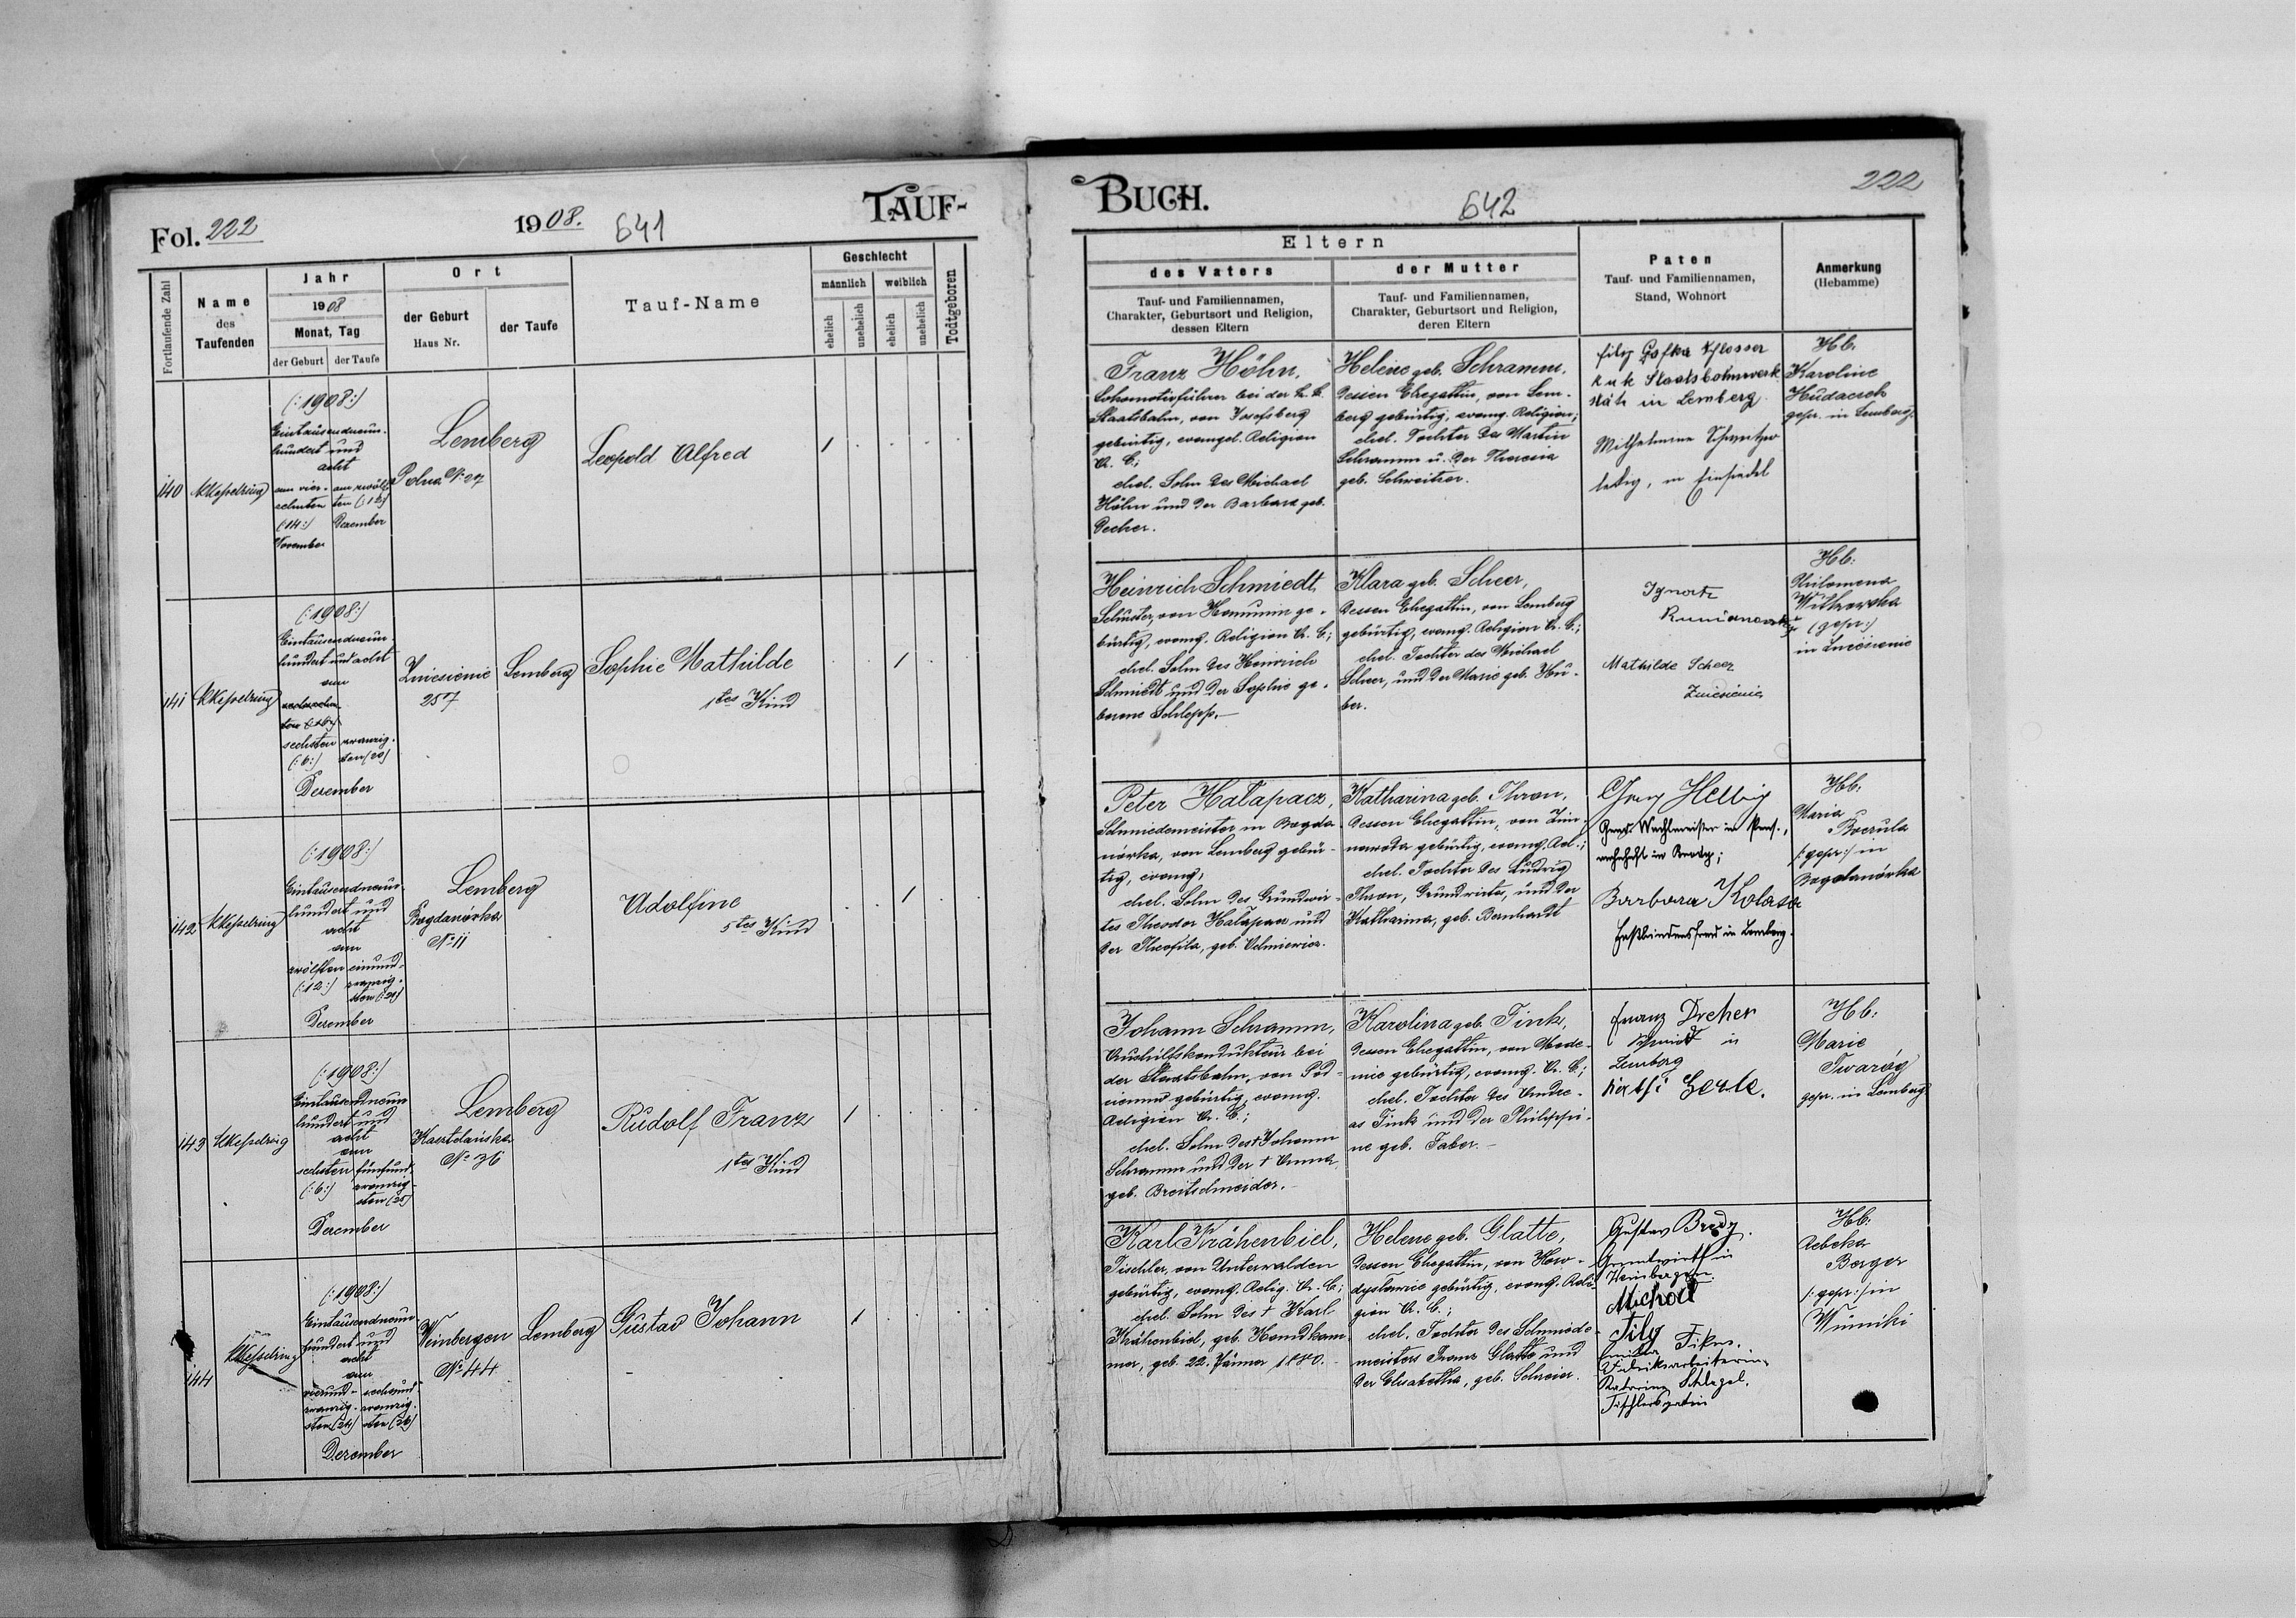 Fol. 222
1908.
641
TAUF-
Fortlaufende Zahl
Name
des
Taufenden
Jahr
1908
Monat, Tag
der Geburt
der Taufe
Ort
der Geburt
Haus Nr.
der Taufe
Tauf-Name
Geschlecht
männlich
weiblich
ehelich
unehelich
ehelich
unehelich
Todtgeboren
140
Kesselring
(:1908:)
Eintausendneun-
hundert und
acht
am vier-
zehnten
(:14:)
November
am zwölf-
ten (:12:)
Dezember
Lemberg
Polna No 27
Leopold Alfred
1
141
Kesselring
(:1908:)
Eintausendneun-
hundert und acht
am
sechsten
(:6:)
zwanzig-
sten (20)
Dezember
Zniesienie
257
Lemberg
Sophie Mathilde
1tes Kind
1
142
Kesselring
(:1908:)
Eintausendneun-
hundert und
acht
am
zwölften
(:12:)
einund-
zwanzig-
sten (:21)
Dezember
Lemberg
Bogdanówka
No 11
Adolfine
5tes Kind
1
143
Kesselring
(:1908:)
Eintausendneun
hundert und
acht
am
sechsten
(:6:)
fünfund-
zwanzig-
sten (25)
Dezember
Lemberg
No 36
Rudolf Franz
1tes Kind
1
144
Kesselring
(:1908:)
Eintausendneun
hundert und
acht
am
vierund-
zwanzig-
sten (24)
sechsund-
zwanzig-
sten (:26)
Dezember
Weinbergen
No 44
Lemberg
Gustav Johann
1
BUCH.
642
222
Eltern
des Vaters
Tauf- und Familiennamen,
Charakter, Geburtsort und Religion,
dessen Eltern
der Mutter
Tauf- und Familiennamen,
Charakter, Geburtsort und Religion,
deren Eltern
Paten
Tauf- und Familiennamen,
Stand, Wohnort
Anmerkung
(Hebamme)
Franz Höhn,
Lokomotivführer bei der k. k.
Staatsbahn, von Josefsberg
gebürtig, evangel. Religion
A. C.;
ehel. Sohn des Michael
Höhn und der Barbara geb.
Decher.
Helene geb. Schramm,
dessen Ehegattin, von Lem-
berg gebürtig, evang. Religion;
ehel. Tochter des Martin
Schramm u. der Theresia
geb. Schweitzer.
Filip Schlosser
k u k Staatsbahnwerk
stät in Lemberg
Wilhelmine
ledig, in Einsiedel
Hb.
Karoline
Hudacsek
gepr. in Lemberg.
Heinrich Schmiedt,
Schuster, von ge-
bürtig, evang. Religion A. C.;
ehel. Sohn des Heinrich
Schmiedt und der Sophie ge-
borene Schlepp.
Klara geb. Scheer,
dessen Ehegattin, von Lemberg
gebürtig, evang. Religion A. C.;
ehel. Tochter des Michael
Scheer, und der Marie geb. Hu-
ber.
Ignatz
Mathilde Scheer
Zniesienie
Hb:
Philomena
Witkowska
(gepr:)
in Zniesienie
Peter Hałapacz,
Schmiedemeister in Bogda-
nówka, von Lemberg gebür-
tig, evang;
ehel. Sohn des Grundwir-
tes Theodor Hałapacz und
der Theofila, geb.
Katharina geb. Thron,
dessen Ehegattin, von Zim-
nawoda gebürtig, evang. Rel.;
ehel. Tochter des Ludwig
Thron, Grundwirtes, und der
Katharina, geb. Bernhardt
Georg Hellwig
Wachtmeister in Pens.,
wohnhaft in
Barbara Kolasa
in Lemberg.
Hb:
Maria
(:gepr:) in
Bogdanówka
Johann Schramm,
Aushilfskondukteur bei
der Staatsbahn, von
gebürtig, evang.
Religion A. C.;
ehel. Sohn des † Johann
Schramm und der † Anna
geb. Breitschneider.
Karolina geb. Fink,
dessen Ehegattin, von Mode-
nie gebürtig, evang. A. C.;
ehel. Tochter des Andre-
as Fink und der Philippi-
ne geb. Faber.
Franz Dreher
Schmidt in
Lemberg
Kathi
Hb:
Marie
Twaróg
gepr. in Lemberg
Karl Krähenbiel,
Tischler, von Unterwalden
gebürtig, evang. Relig. A. C.;
ehel. Sohn des † Karl
Krähenbiel, geb.
geb. 22. Jänner 1880.
Helene geb. Glatte,
dessen Ehegattin, von How-
dyslawic gebürtig, evang. Reli-
gion A. C.;
ehel. Tochter des Schmiede-
meisters Franz Glatte und
der Elisabetha, geb. Schreier.
Gustav
Grundwirth in
Weinbergen.
Michael
Filp
Emilia
Fabriksarbeiterin
Katarina Schlegel.
Tischlersgattin
Hb:
Rebeka
Berger
(:gepr:) in
Winniki